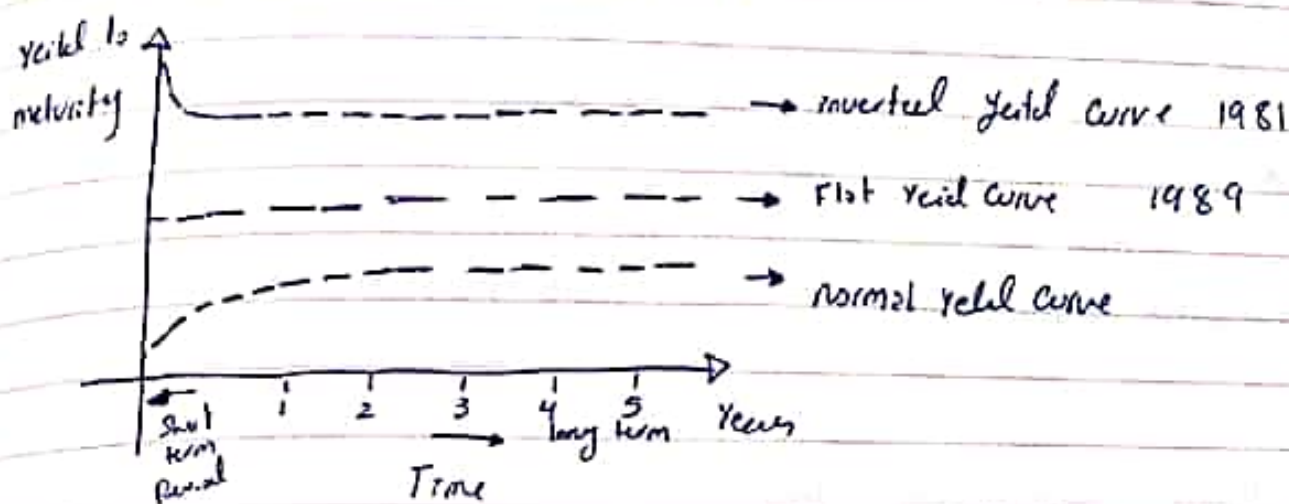 Yeild to
maturity
→ inverted Yeild Curve 1981
→ Flat Yeild Curve 1989
→ normal Yeild Curve
1 2 3 4 5 Years
Short term Period
→ long term
Time